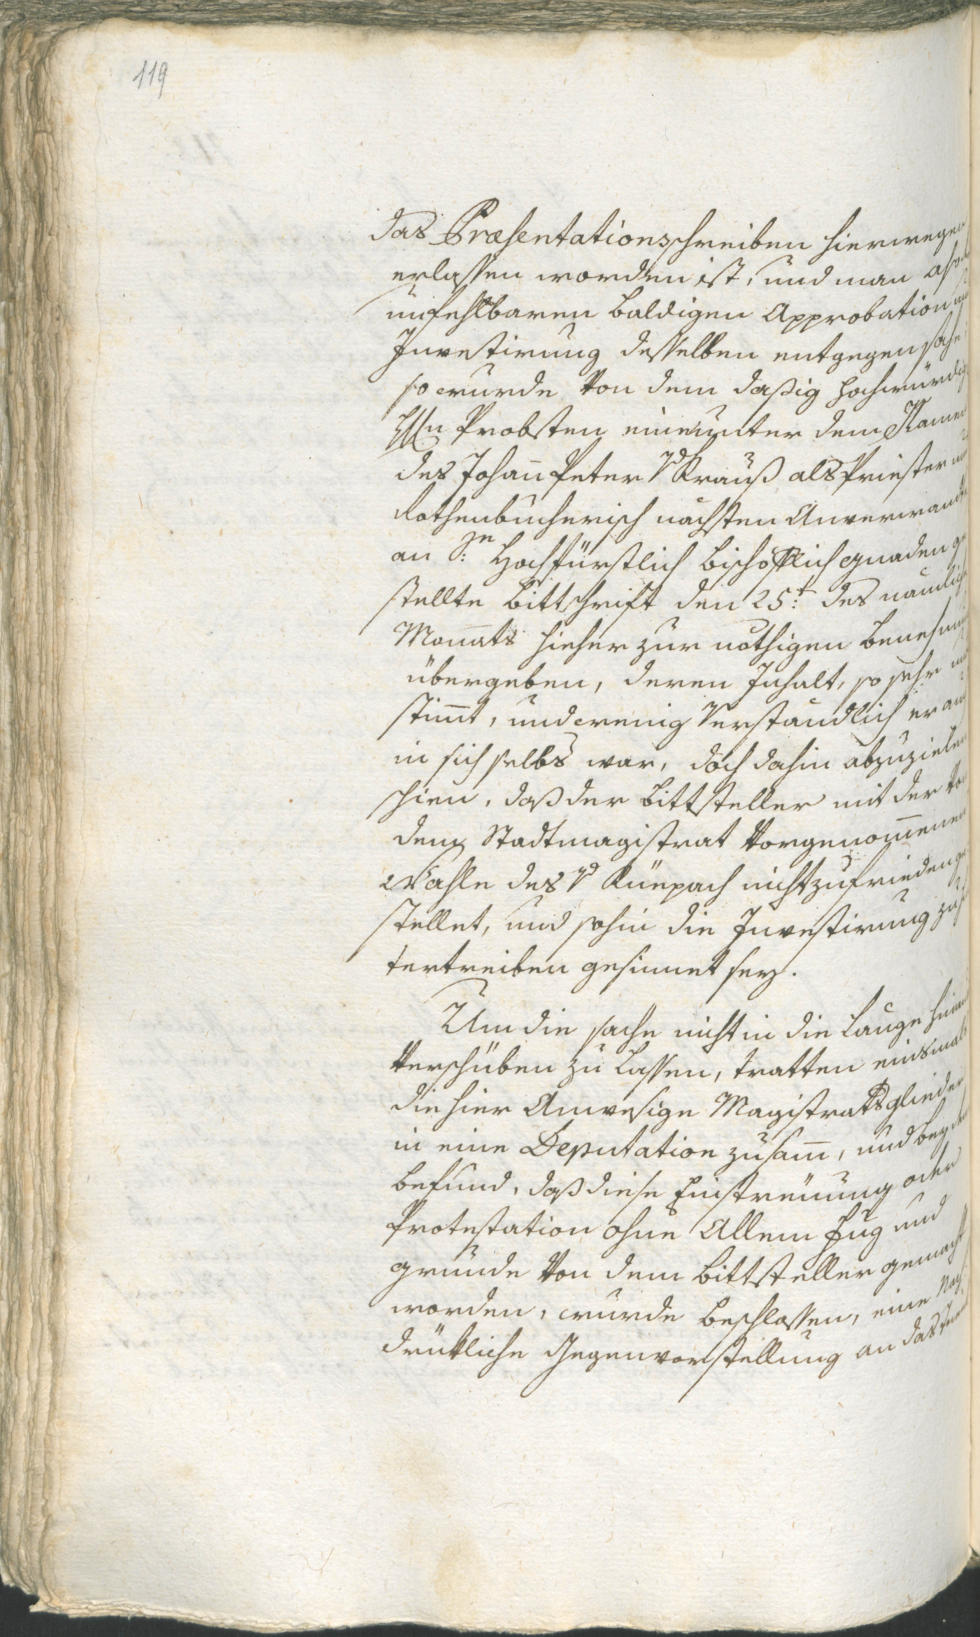 119
das Præsentationsschreiben hierwegen
erlassen worden ist, und man
unfehlbaren baldigen Approbation
Investirung desselben entgegen sahe
so wurde von dem dasig hochwürdig
Hn Probsten eine unter dem Namen
des Johann Peter v Krauß als Priester
Rothenbucherisch nächsten Anverwandt
an Sn: Hochfürstlich bischöfflich Gnaden ge
stellte Bittschrift den 25t: des nämlich
Monats hieher zur nöthigen Benehmung
übergeben, deren Inhalt, so sehr
stimt, und wenig verständlich er
in sich selbs war, doch dahin abzuzielen
schien, daß der Bittsteller mit der
dem Stadtmagistrat vorgenommenen
Wahle des v Künpach nicht zufrieden ge
stellet, und sohin die Investirung
tertreiben gesinnet sey.
Um die sache nicht in die Länge
verschüben zu lassen, tratten einsmal
die hier Anwesige Magistratsglieder
in eine Deputation zusam, und bey
befund, daß diese Einstreüung oder
Protestation ohne Allem Fug und
gründe von dem Bittsteller gemacht
worden, wurde beschlossen, eine Nach
drükliche Gegenvorstellung an das